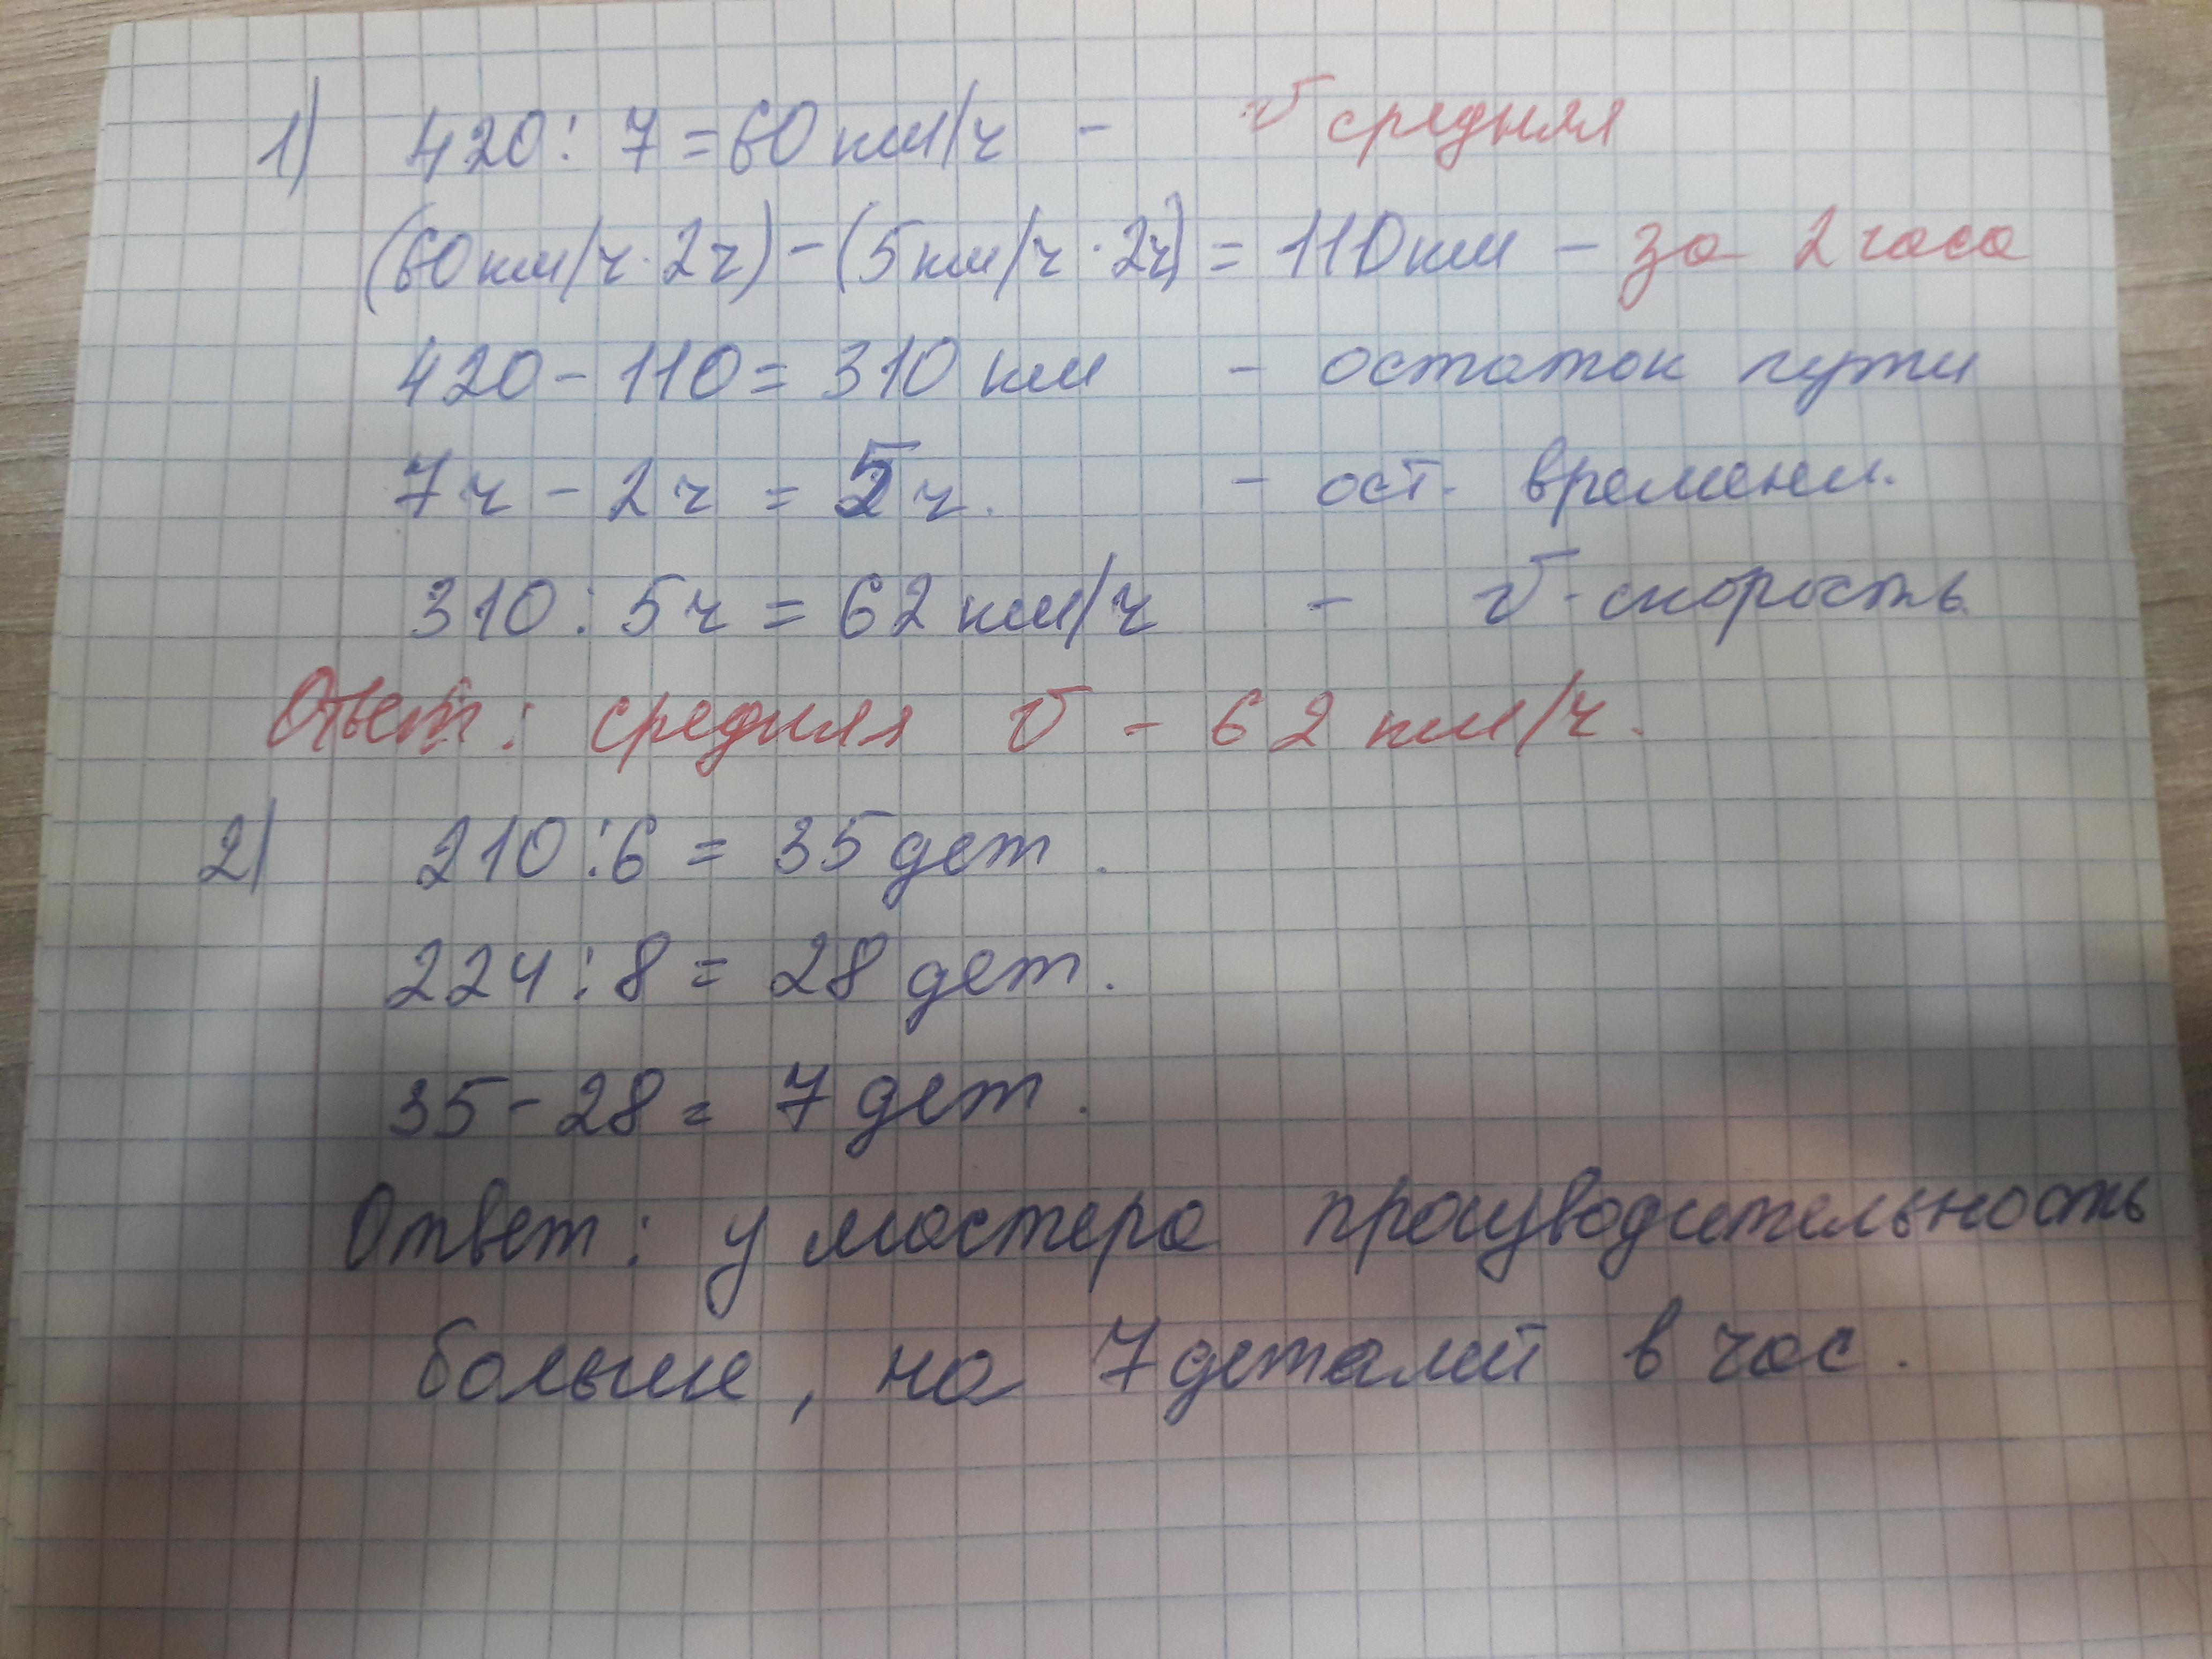 1) 420 : 7 = 60 км/ч - v средняя
(60 км/ч · 2ч) - (5 км/ч · 2ч) = 110 км - за 2 часа
420 - 110 = 310 км - остаток пути
7ч - 2ч = 5ч. - ост. времени.
310 : 5ч = 62 км/ч - v - скорость
Ответ: средняя v - 62 км/ч.
2) 210 : 6 = 35 дет.
224 : 8 = 28 дет.
35 - 28 = 7 дет.
Ответ: у мастера производительность
больше, на 7 деталей в час.